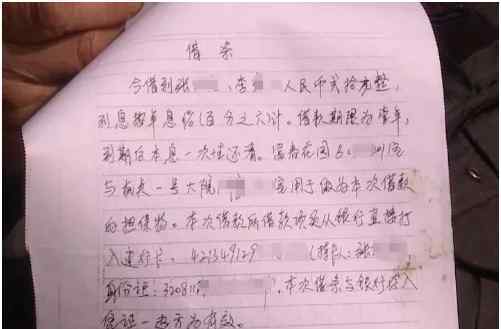 借条
今借到张 、李 人民币贰拾元整，
利息按单息6%(百分之六)计。借款期限为壹年，
到期后本息一次性还清。 花园
与 一号大院 室用于做为本次借款
的担保物。本次借款所借款项是从银行直接打
入建行卡，421349129 (持卡人：张
身份证：320811 ，本次借条与银行 入
凭证一起方为有效。